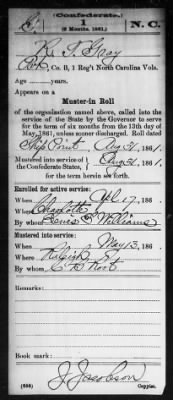 (Confederate.)
C. 1 N.C.
(6 Months, 1861.)
R. T. Gray
Co. B, 1 Reg't North Carolina Vols.
Age years.
Appears on a
Muster-in Roll
of the organization named above, called into the
service of the State by the Governor to serve
for the term of six months from the 13th day of
May, 1861, unless sooner discharged. Roll dated
Ship Point Aug 31, 1861.
Mustered into service of
the Confederate States, Aug 31, 1861.
for the term herein set forth.
Enrolled for active service:
When Apl 17, 186 .
Where Charlotte
By whom Lewis S. Williams
Mustered into service:
When May 13, 186 .
Where Raleigh
By whom C. B. Root
Remarks:
Book mark:
(656) J. Jacobson
Copyist.